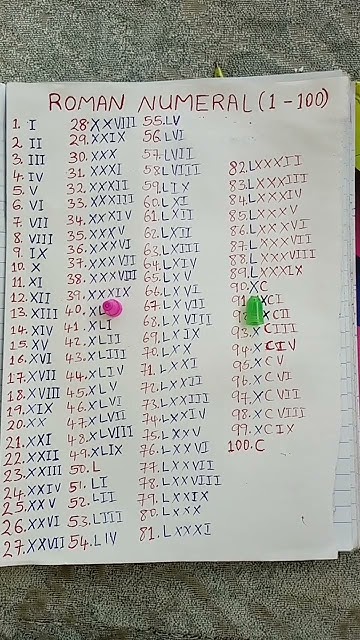 ROMAN NUMERAL (1 - 100)
1. I
2. II
3. III
4. IV
5. V
6. VI
7. VII
8. VIII
9. IX
10. X
11. XI
12. XII
13. XIII
14. XIV
15. XV
16. XVI
17. XVII
18. XVIII
19. XIX
20. XX
21. XXI
22. XXII
23. XXIII
24. XXIV
25. XXV
26. XXVI
27. XXVII
28. XXVIII
29. XXIX
30. XXX
31. XXXI
32. XXXII
33. XXXIII
34. XXXIV
35. XXXV
36. XXXVI
37. XXXVII
38. XXXVIII
39. XXXIX
40. XL
41. XLI
42. XLII
43. XLIII
44. XLIV
45. XLV
46. XLVI
47. XLVII
48. XLVIII
49. XLIX
50. L
51. LI
52. LII
53. LIII
54. LIV
55. LV
56. LVI
57. LVII
58. LVIII
59. LIX
60. LXI
61. LXII
62. LXII
63. LXIII
64. LXIV
65. LXV
66. LXVI
67. LXVII
68. LXVIII
69. LXIX
70. LXX
71. LXXI
72. LXXII
73. LXXIII
74. LXXIV
75. LXXV
76. LXXVI
77. LXXVII
78. LXXVIII
79. LXXIX
80. LXXX
81. LXXXI
82. LXXXII
83. LXXXIII
84. LXXXIV
85. LXXXV
86. LXXXVI
87. LXXXVII
88. LXXXVIII
89. LXXXIX
90. XC
91. XCI
92. XCII
93. XCIII
94. XCIV
95. XCV
96. XCVI
97. XCVII
98. XCVIII
99. XCIX
100. C